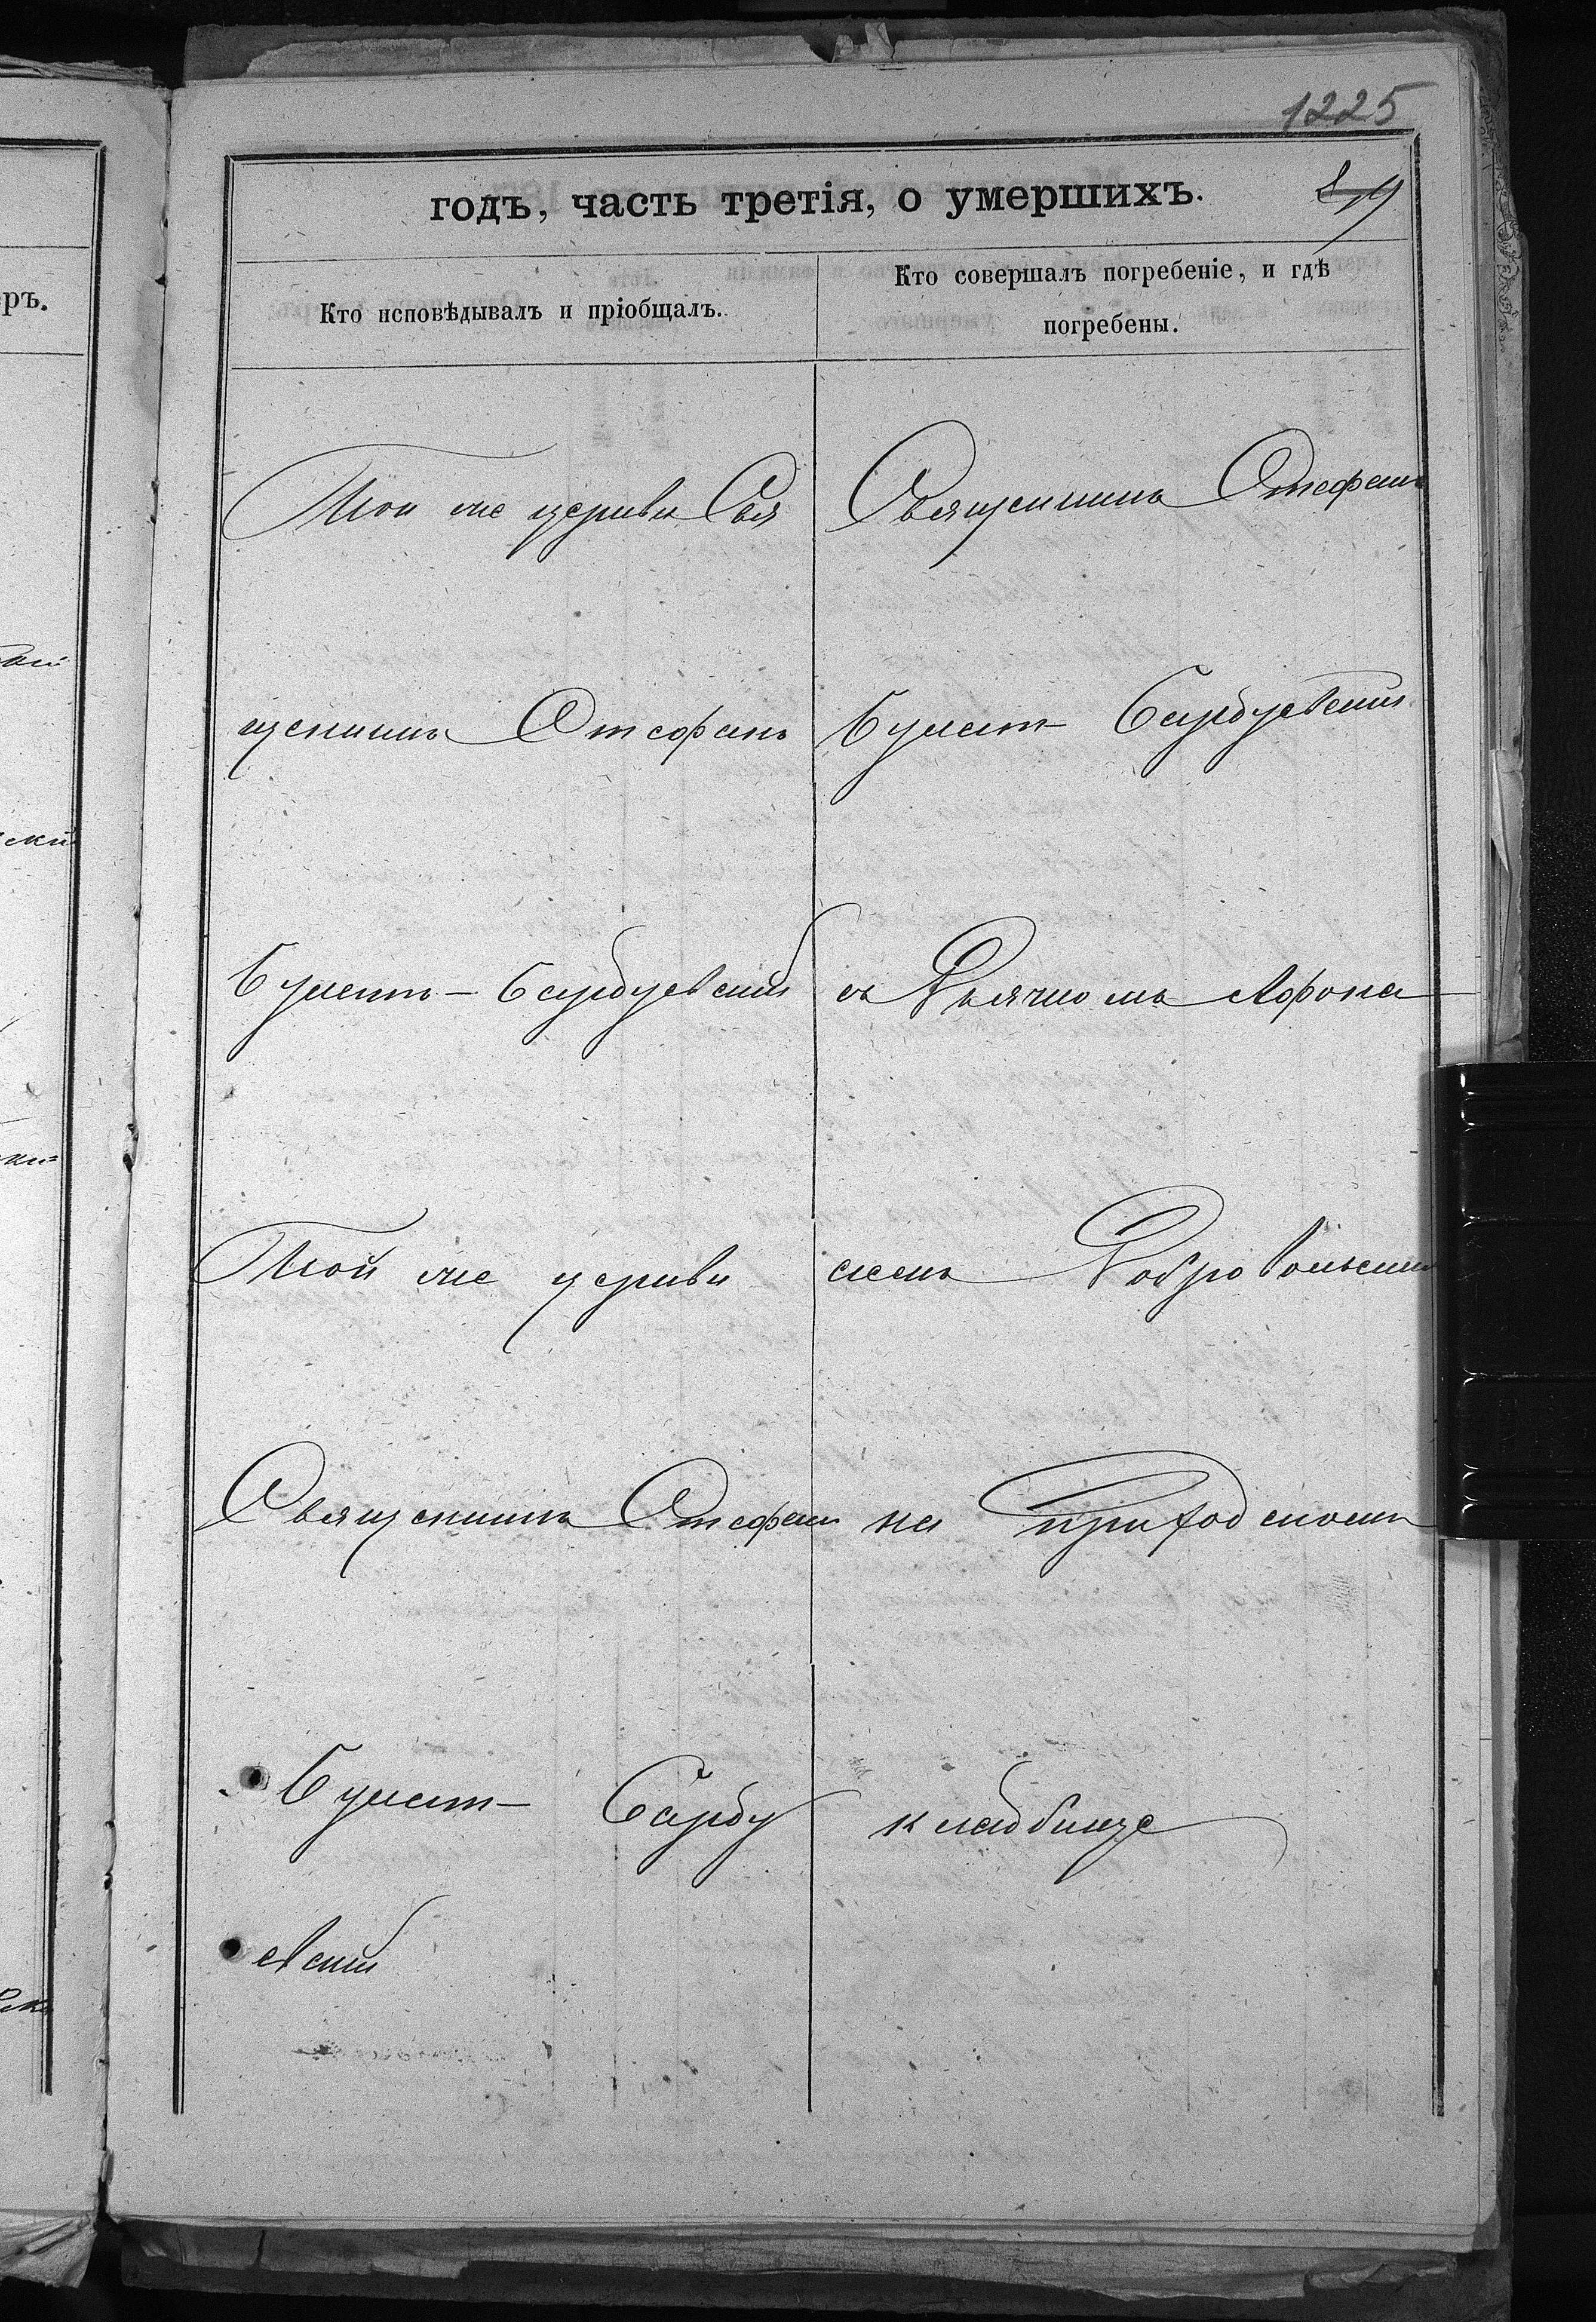 1225
годъ, часть третія, о умершихъ.
Кто исповѣдывалъ и пріобщалъ.
Кто совершалъ погребеніе, и гдѣ
погребены.
Той же церкви Свя
щенникъ Стефанъ
Булат-Барбуевскій
Той же церкви
Священникъ Стефанъ
Булат- Барбу
евскій
Священникъ Стефанъ
Булат- Барбуевскій
съ Дьячкомъ Афона
сіемъ Добровольскимъ
на Приходскомъ
кладбищѣ
ръ.